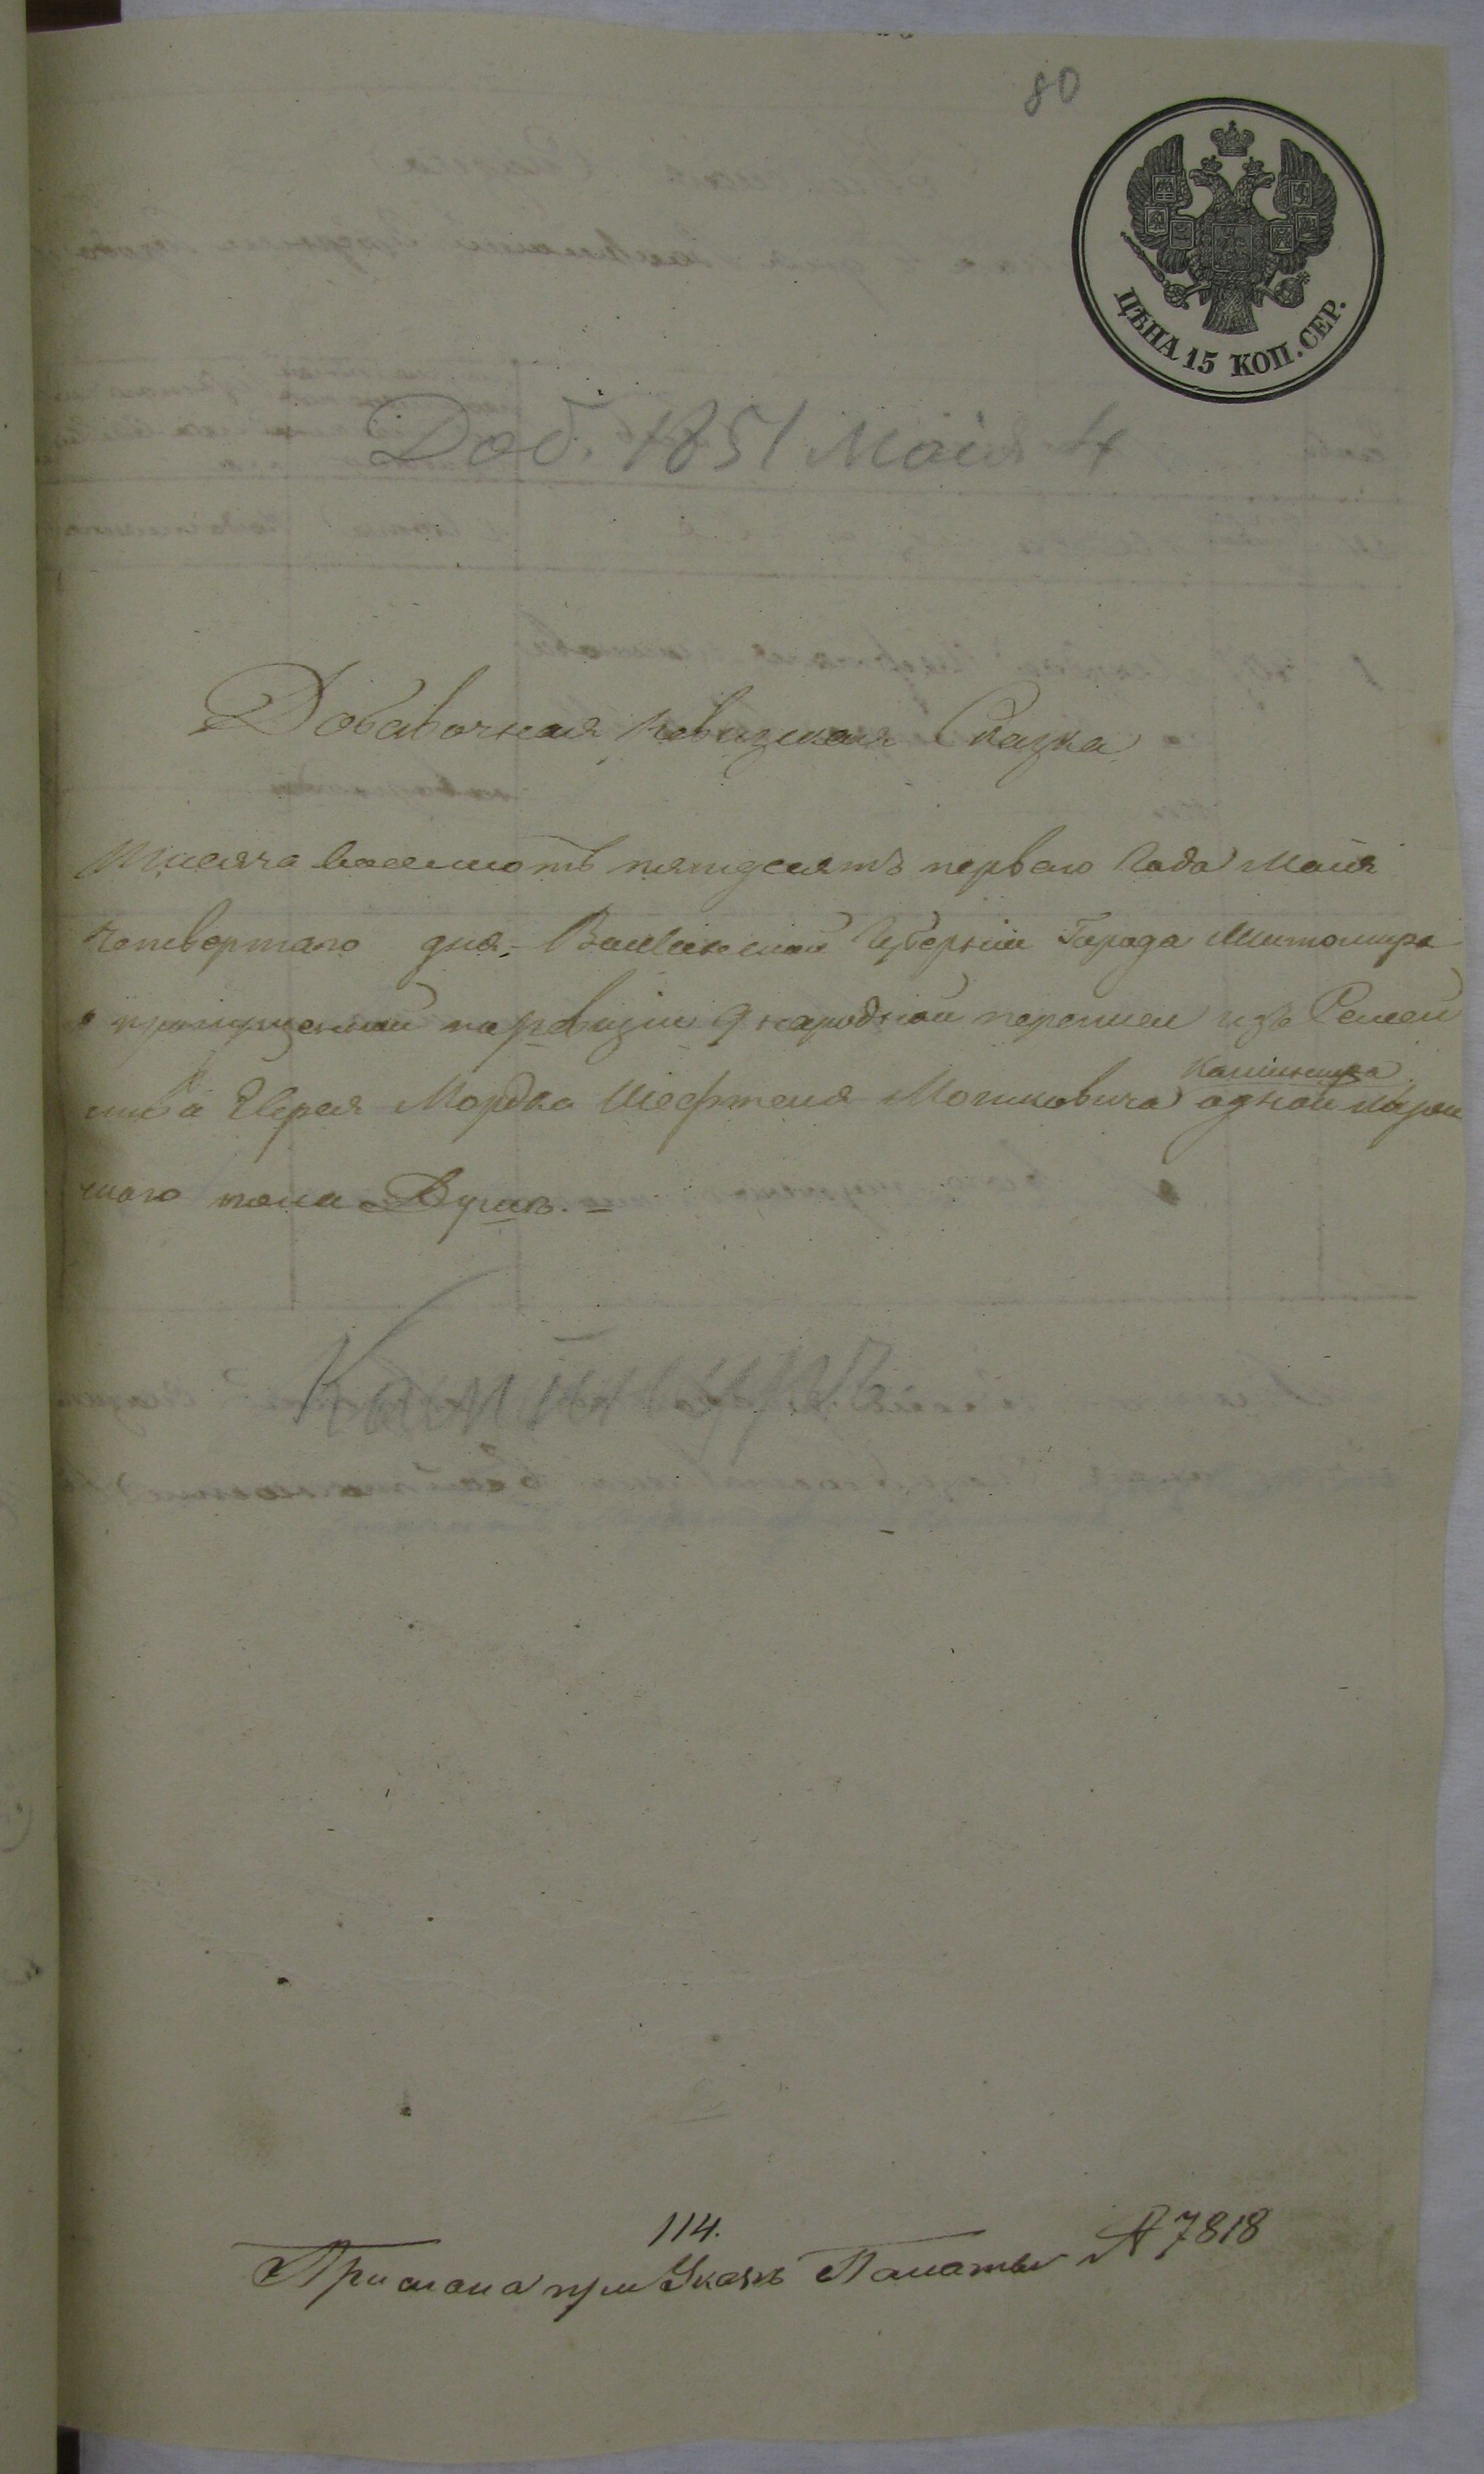 80
ЦѢНА 15 КОП. СЕР.
Доб. 1851 Маія 4
Добавочная ревизская Сказка
Тысяча восемсотъ пятдесятъ перваго Года Маія
четвертаго дня, Волынской Губерніи Города Житомира
о пропущенной по ревизіи 9 народной переписи изъ Семей
ства Еврея Мордка Шефтеля Мошковича Камінкера одной мужес
каго пола Душъ. =
114.
Прислана при Указѣ Палаты № 7818